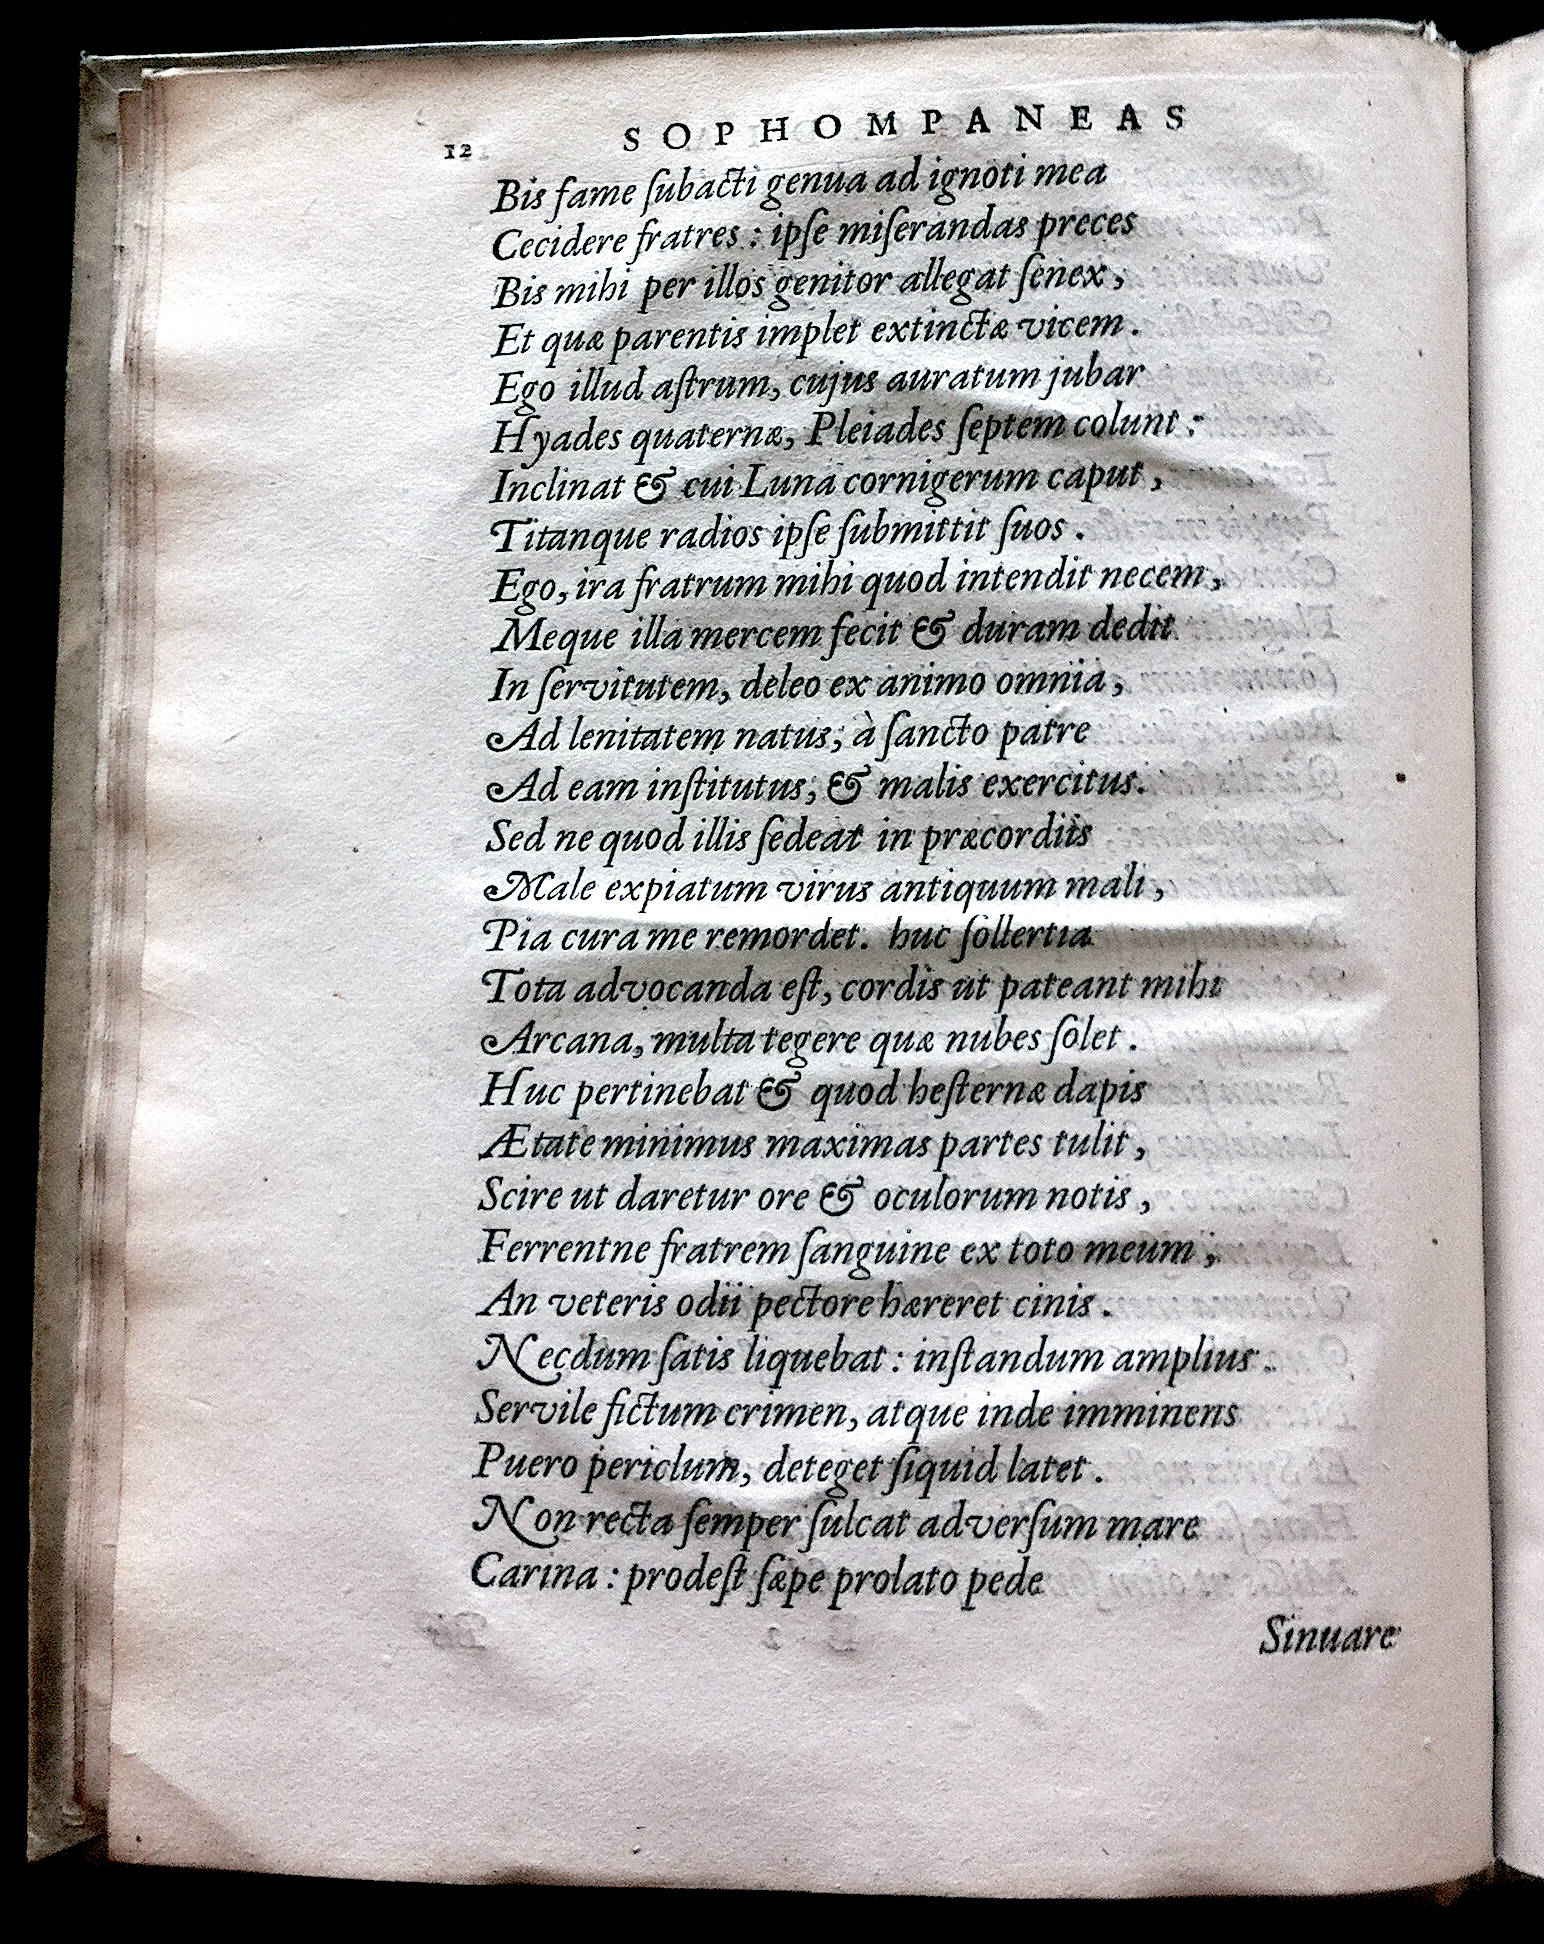 12 SOPHOMPANEAS
Bis fame ſubacti genua ad ignoti mea
Cecidere fratres : ipſe miſerandas preces
Bis mihi per illos genitor allegat ſenex,
Et quæ parentis implet extinctæ vicem.
Ego illud aſtrum, cujus auratum jubar
Hyades quaternæ, Pleiades ſeptem colunt:
Inclinat & cui Luna cornigerum caput,
Titanque radios ipſe ſubmittit ſuos.
Ego, ira fratrum mihi quod intendit necem,
Meque illa mercem fecit & duram dedit
In ſervitutem, deleo ex animo omnia,
Ad lenitatem natus, à ſancto patre
Ad eam inſtitutus, & malis exercitus.
Sed ne quod illis ſedeat in præcordiis
Male expiatum virus antiquum mali,
Pia cura me remordet. huc ſollertia
Tota advocanda eſt, cordis ut pateant mihi
Arcana, multa tegere quæ nubes ſolet.
Huc pertinebat & quod heſternæ dapis
Ætate minimus maximas partes tulit,
Scire ut daretur ore & oculorum notis,
Ferrentne fratrem ſanguine ex toto meum,
An veteris odii pectore hæreret cinis.
Necdum ſatis liquebat : inſtandum amplius.
Servile fictum crimen, atque inde imminens
Puero periclum, deteget ſiquid latet.
Non recta ſemper ſulcat adverſum mare
Carina : prodeſt ſæpe prolato pede
Sinuare